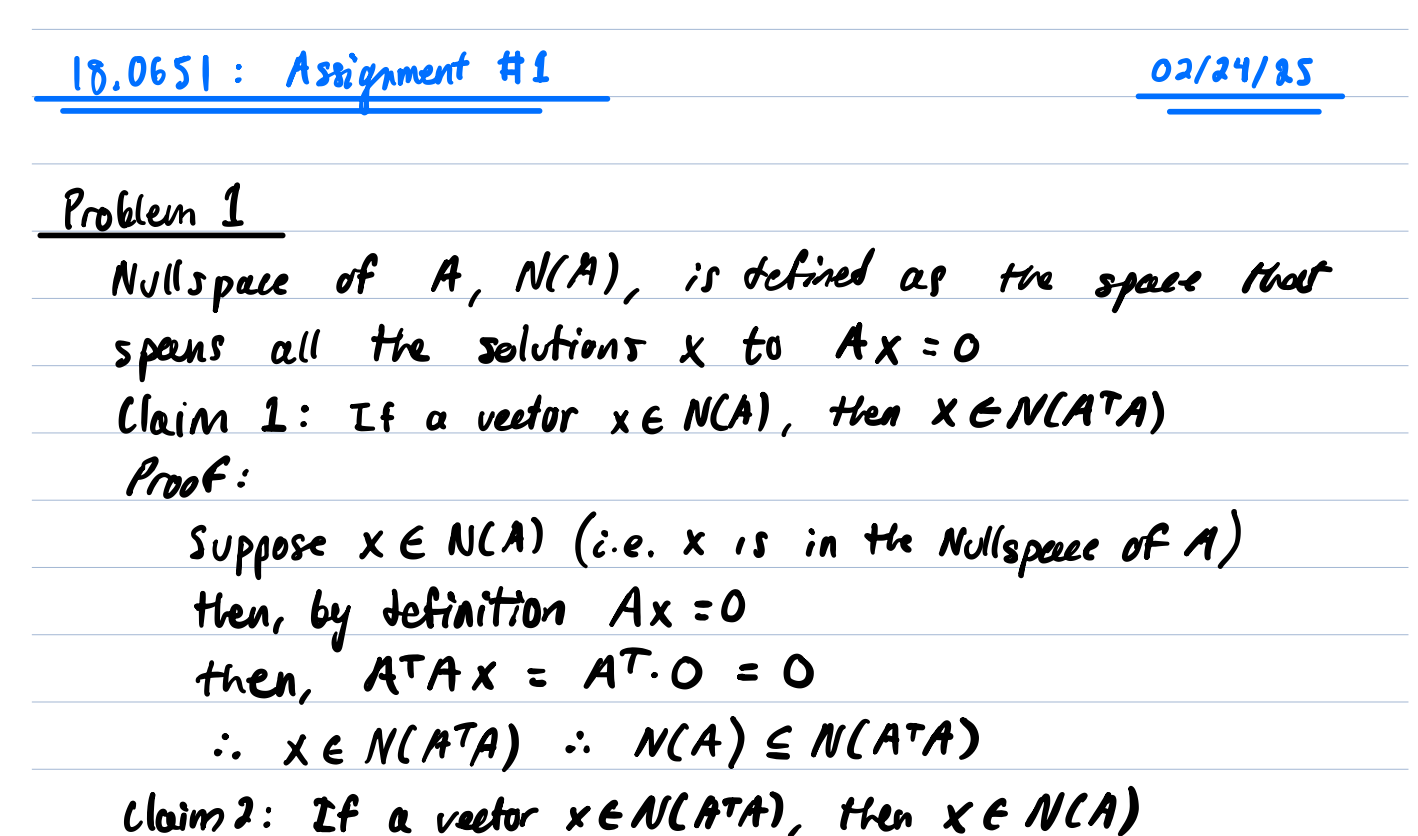 18.0651: Assignment #1
02/24/25
Problem 1
Nullspace of A, N(A), is defined as the space that
spans all the solutions x to Ax = 0
Claim 1: If a vector x ∈ N(A), then x ∈ N(AᵀA)
Proof:
Suppose x ∈ N(A) (i.e. x is in the Nullspace of A)
then, by definition Ax = 0
then, AᵀAx = Aᵀ·0 = 0
∴ x ∈ N(AᵀA) ∴ N(A) ⊆ N(AᵀA)
Claim 2: If a vector x ∈ N(AᵀA), then x ∈ N(A)